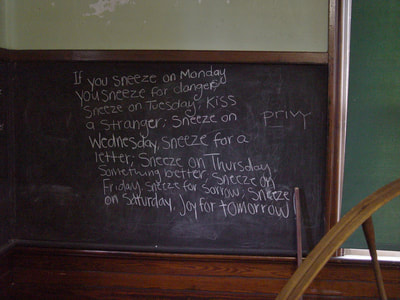 If you sneeze on Monday
you sneeze for danger;
Sneeze on Tuesday, kiss
a stranger; Sneeze on
Wednesday, sneeze for a
letter; Sneeze on Thursday
something better; Sneeze on
Friday, sneeze for sorrow; Sneeze
on saturday, Joy for tomorrow!
privy